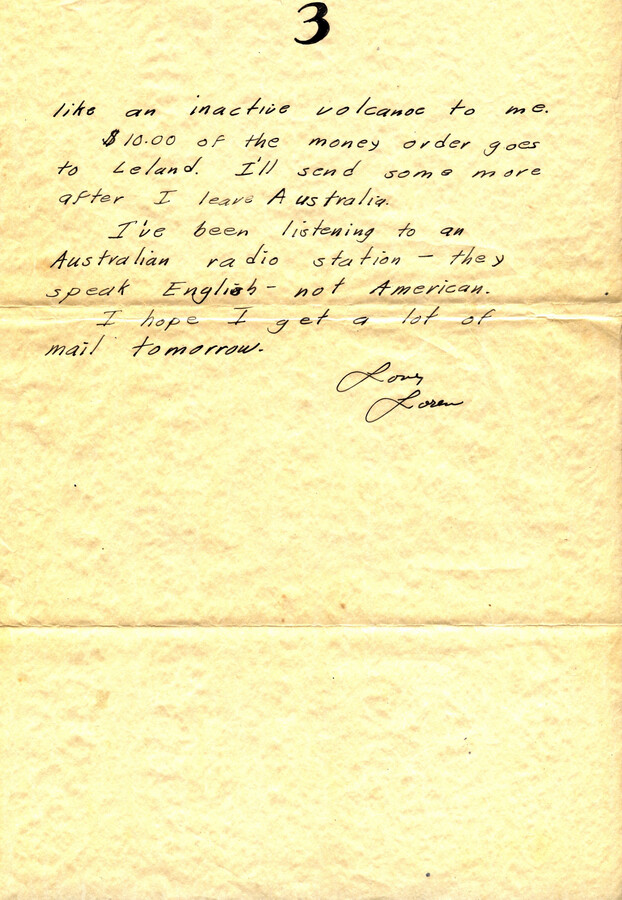 3
like an inactive volcanoe to me.
$10.00 of the money order goes
to Leland. I'll send some more
after I leave Australia.
I've been listening to an
Australian radio station – they
speak English – not American.
I hope I get a lot of
mail tomorrow.
Love,
Loren